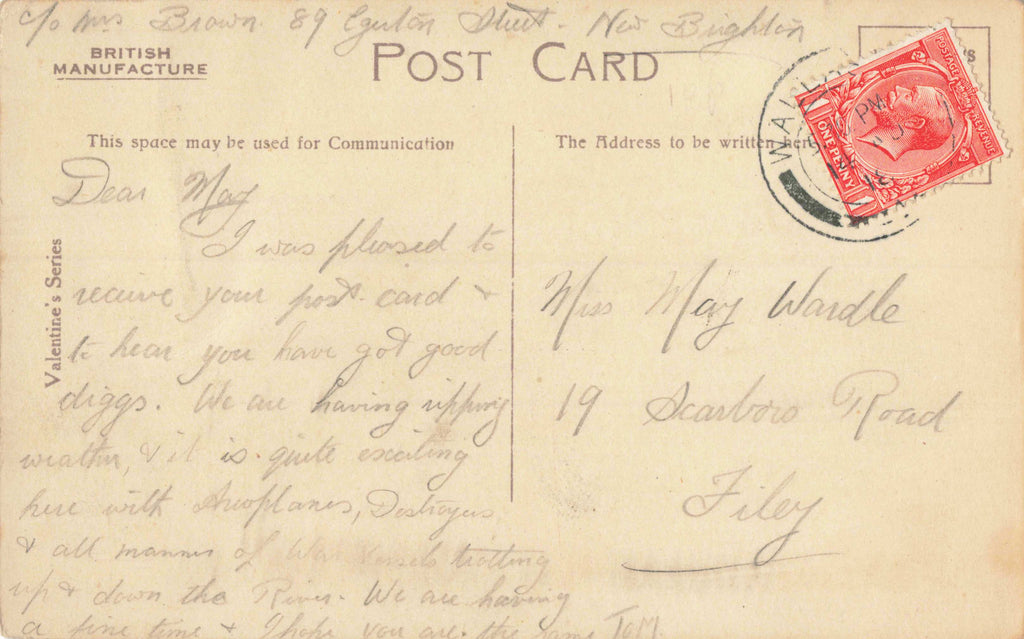 c/o Mrs Brown. 89 Egerton Street. New Brighton
BRITISH
MANUFACTURE
POST CARD
This space may be used for Communication
The Address to be written here
Valentine's Series
Dear May
I was pleased to
receive your post card &
to hear you have got good
diggs. We are having ripping
weather, & it is quite exciting
here with Aeroplanes, Destroyers
& all manner of War Vessels trotting
up & down the River. We are having
a fine time & I hope you are the same TOM.
Miss May Wardle
19 Scarboro Road
Filey
WALL
PM
18
POSTAGE
REVENUE
ONE PENNY
1
1